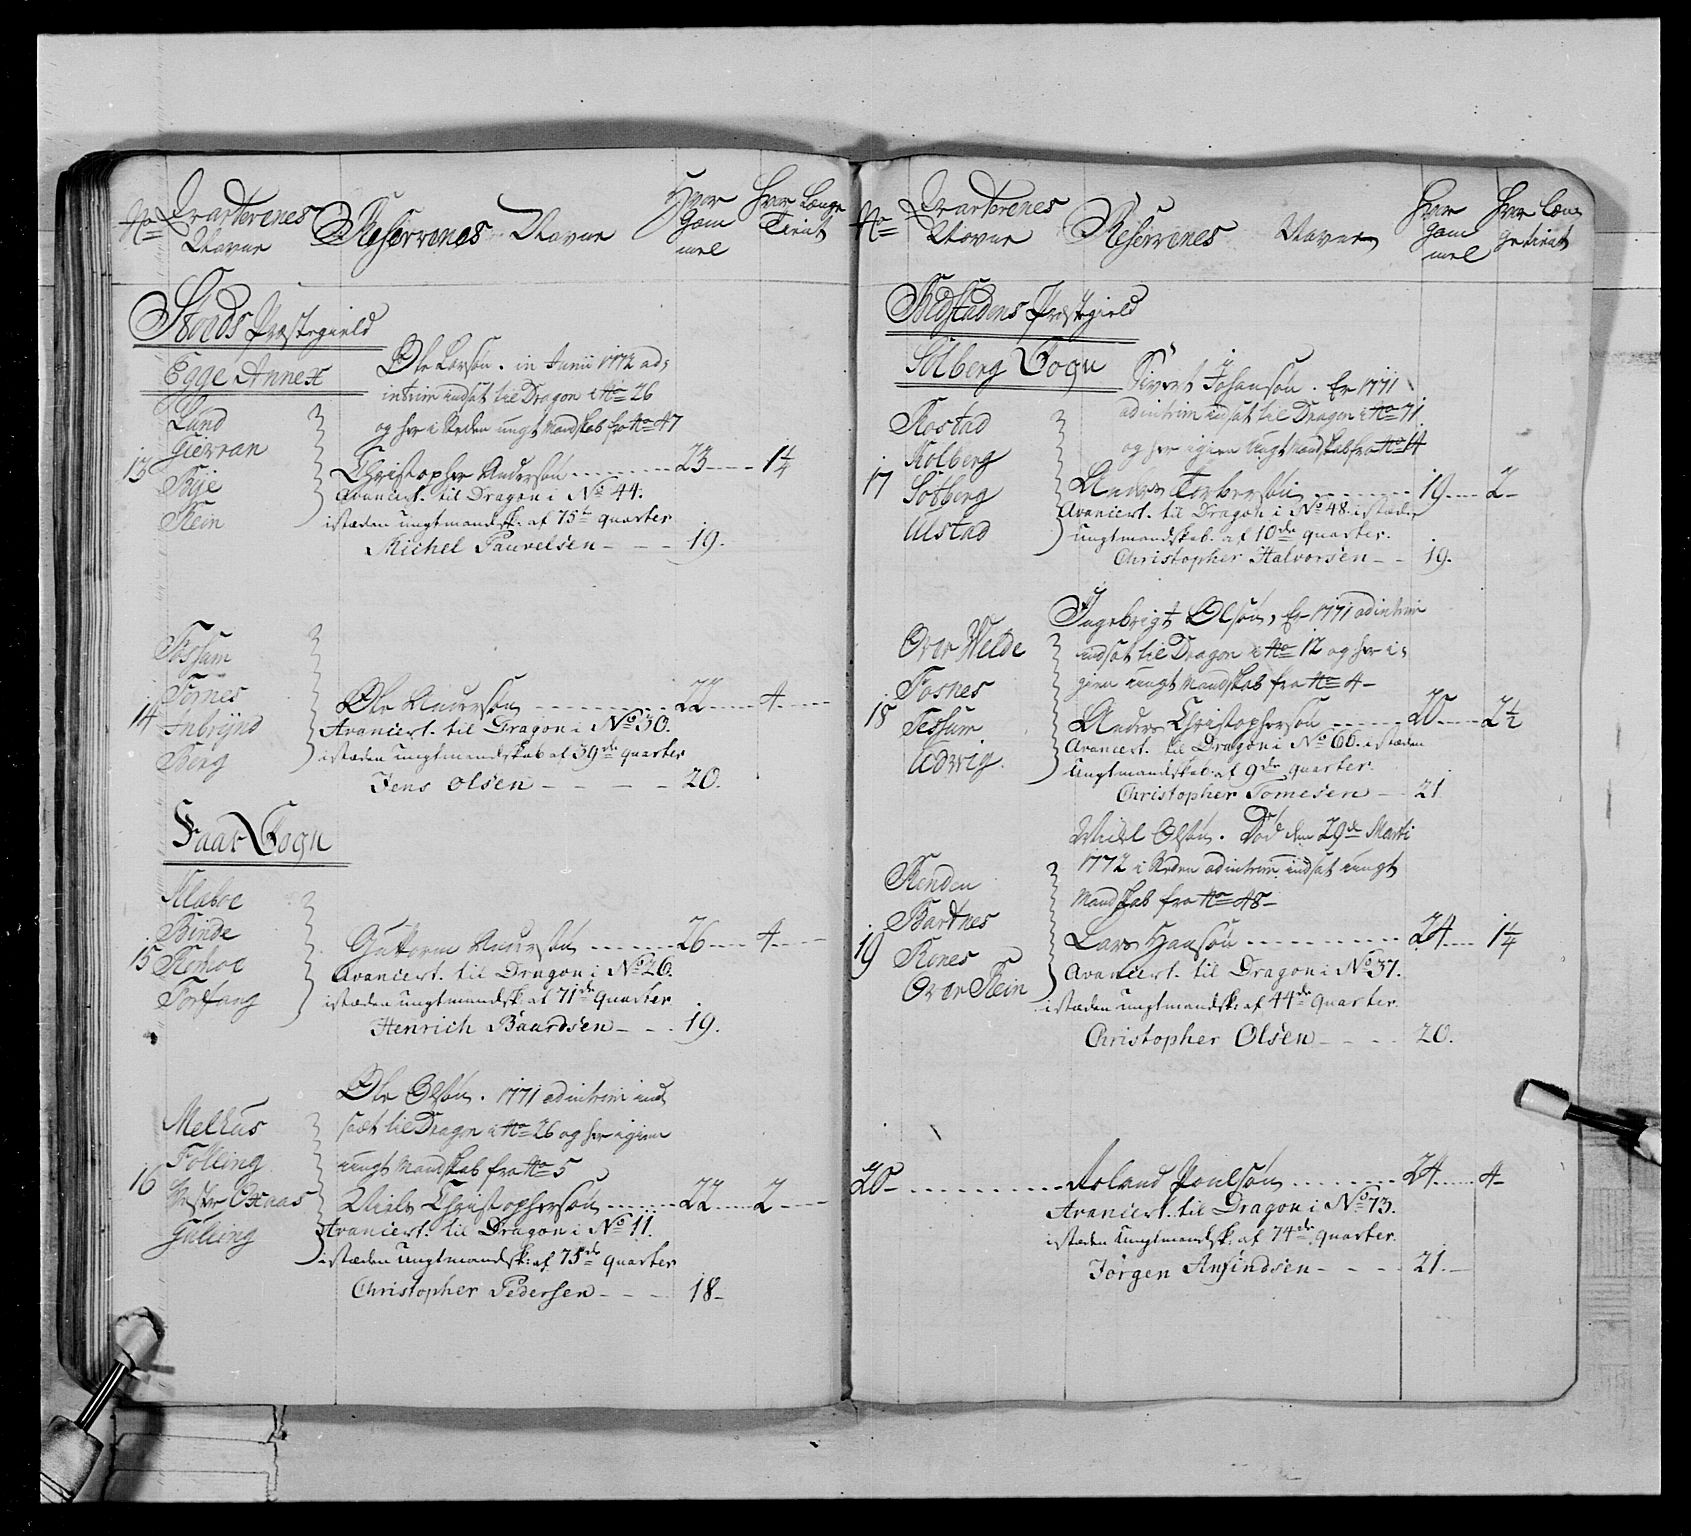 No Qvarterenes Navne
Reserrenes Navne
Hvor Gam mel
Hvor Længe Tient
Stods Præstegield
Egge Annex
Ole Larsøn. in Junii 1772 ad:
intrim indsat til Dragon i No 26
og her i Steden ungt Mandskab fra No 47
Lund
Gievran
13
Bÿe
Stein
Christopher Andersøn 23 1 1/4
Avancert. til Dragon i No 44.
istæden ungtmandsk: af 75te quarter
Michel Paurelsen 19.
Fossum
Tornes
14
Berg
Ole Andersøn 22 4
Avancert. til Dragon i No 30.
istæden ungtmandskab af 39de quarter
Jens Olsen 20.
Faar Sogn
Klaboe
Binde
15
Komoe
Forfang
Guttorm Andersøn 26 4
Avancert. til Dragon i No 26.
istæden ungtmandsk: af 71de quarter
Henrich Baardsen 19.
Ole Olsøn. 1771 adintrim ind
sæt til Dragon i No 26 og her igien
ungt Mandskab fra No 5
Melhus
Følling
16
Oxnaas
Gulling
Niels Christophersøn 22 2
Avancert. til Dragon i No 11.
istæden ungtmandsk: af 75de quarter
Christopher Pedersen 18
No Qvarterenes Navne
Reserrenes Navne
Hvor Gam mel
Hvor Længe tient
Bedstadens Præstegield
Solberg Sogn
Sivert Johansøn. Er 1771
adintrim indsat til Dragon i No 71
og her igien ungt Mandskab fra No 14
Rostad
Kolberg
17
Solberg
Alstad
Anders Torbersøn 19 2
Avancert. til Dragon i No 48. istæd:
ungtmandskab. af 10de quarter.
Christopher Halvorsen 19.
Ingebrigt Olsøn, Er 1771 adintrim
indsat til Dragon i No 12 og her i:
gien ungt Mandskab fra No 4
Over Welde
Fosnes
18
Tessum
Udvig
Anders Christophersøn 20 2 1/2
Avancert. til Dragon i No 66. istæden
ungtmandskab af 9de quarter.
Christopher Tomesen 21
Niels Olsøn. Død den 29de Marti
1772 i Steden adintrim indsat ungt
Mandskab fra No 48
Bartnes
19
Kones
Over Stein
Lars Hansøn 24 1 1/4
Avancert. til Dragon i No 37.
istæden ungtmandsk: af 44de quarter.
Christopher Olsen 20.
20 Poulsøn 24 4
Avancert. til Dragon i No 73.
istæden ungtmandsk: af 74de quarter.
Jørgen Anfindsen 21.